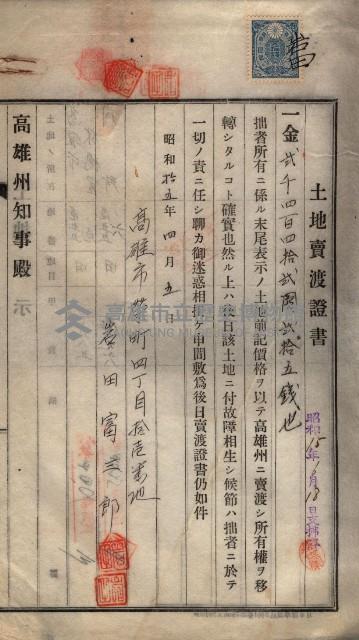 土地賣渡證書
一金貳千四百四拾貳圓貳拾五錢也
拙者所有ニ係ル末尾表示ノ土地前記價格ヲ以テ高雄州ニ賣渡シ所有權ヲ移
轉シタルコト確實也然ル上ハ本日該土地ニ付故障相生シ候節ハ拙者ニ於テ
一切ノ責ニ任シ聊カ御迷惑相掛ケ申間敷爲後日賣渡證書仍如件
昭和拾五年四月五
高雄市 町四丁目拾壱番地
岩田富三郎
高雄州知事殿
昭和15年 月18日支拂
高雄市立歷史博物館